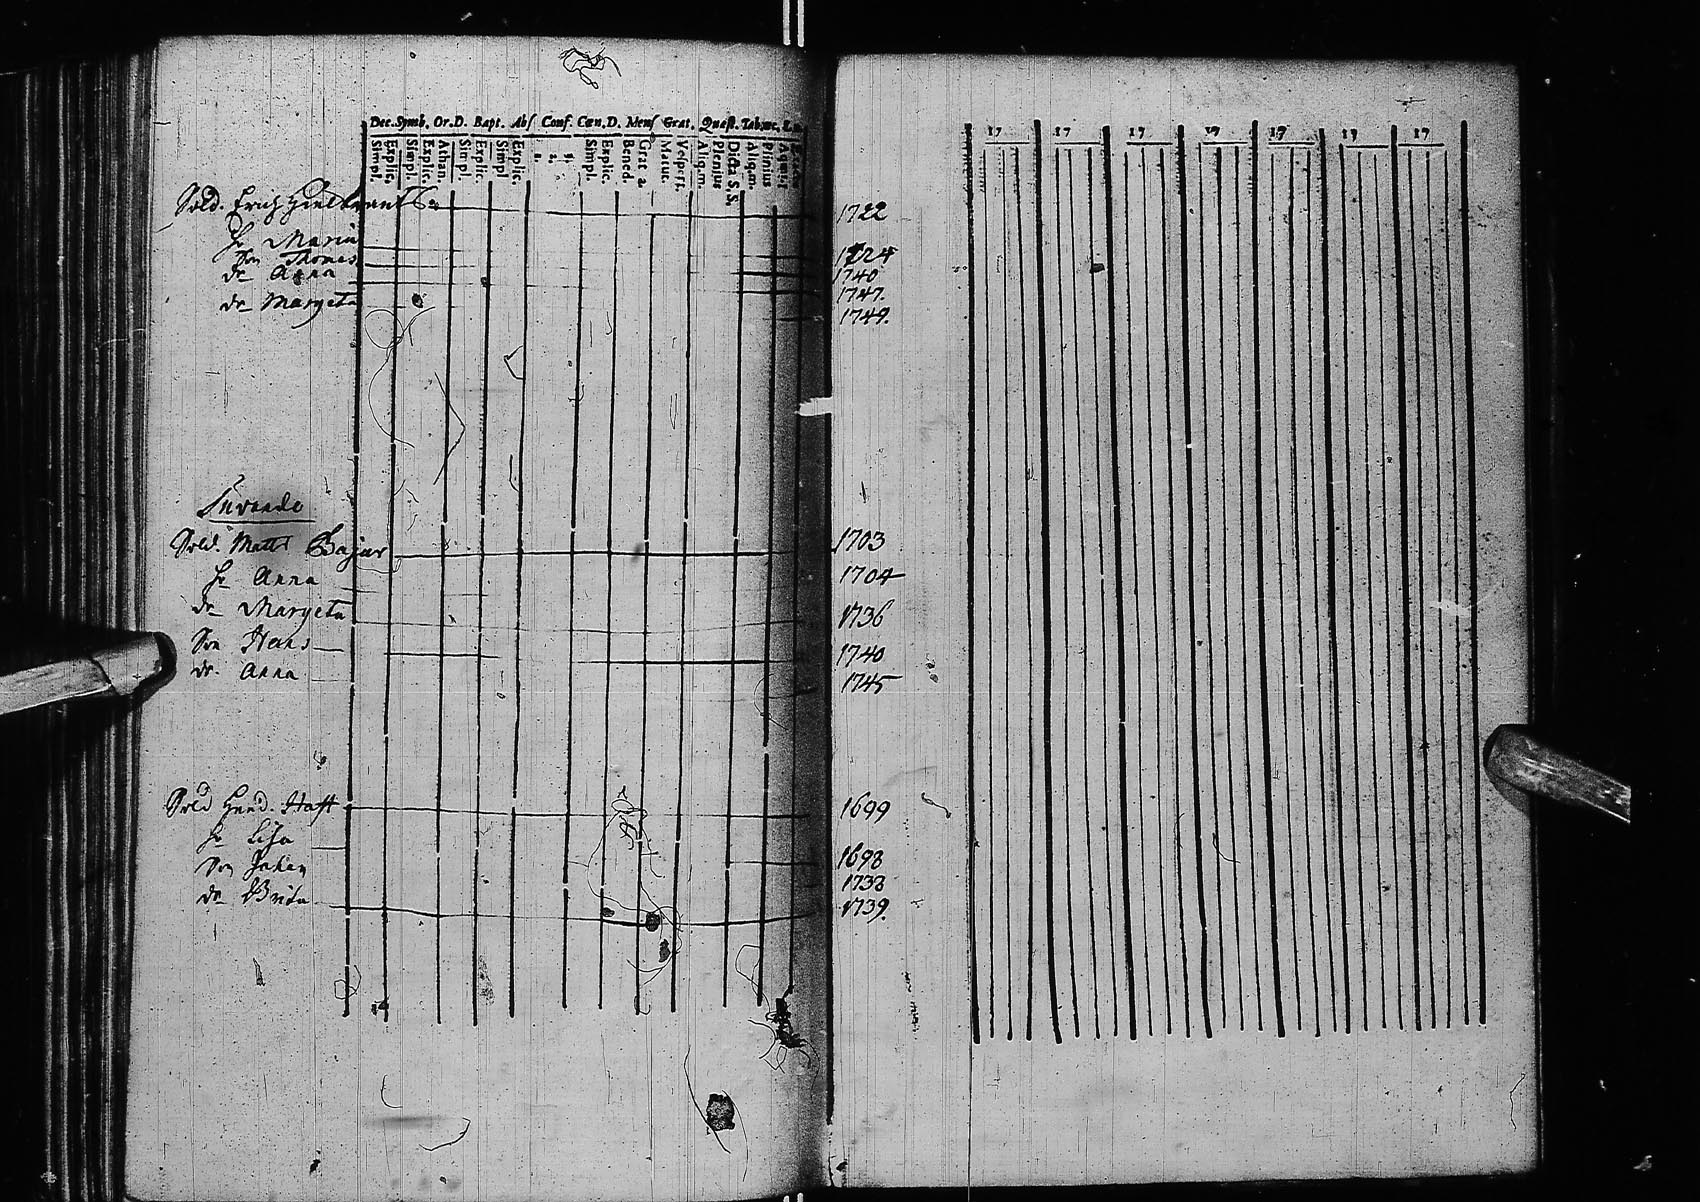 Dec. Symb. Or. D. Bapt. Abs Conf. Cœn. D. Mens Grat. Quæst. Tab. œc.
Simpl. Explic. Simpl. Explic. Athan. Simpl. Explic. Simpl Explic. 1. 2. 3. Simpl. Explic. Bened. Grat. a. Matut. Vespert. Aliq. m. Plenius Dicta S. S. Aliq. m. Plenius
17 17 17 17 17 17 17
Sold. Erich 1722
h. Maria 1724
Son Thomas 1740
dr Anna 1747.
dr Margeta 1749.
Sold. Matts Bajar 1703
h. Anna 1704
dr Margeta 1736
Son Hans 1740
dr. Anna 1745
Sold Hend. Haft 1699
h. Lisa 1698
Son Johan 1738
dr Brita 1739.